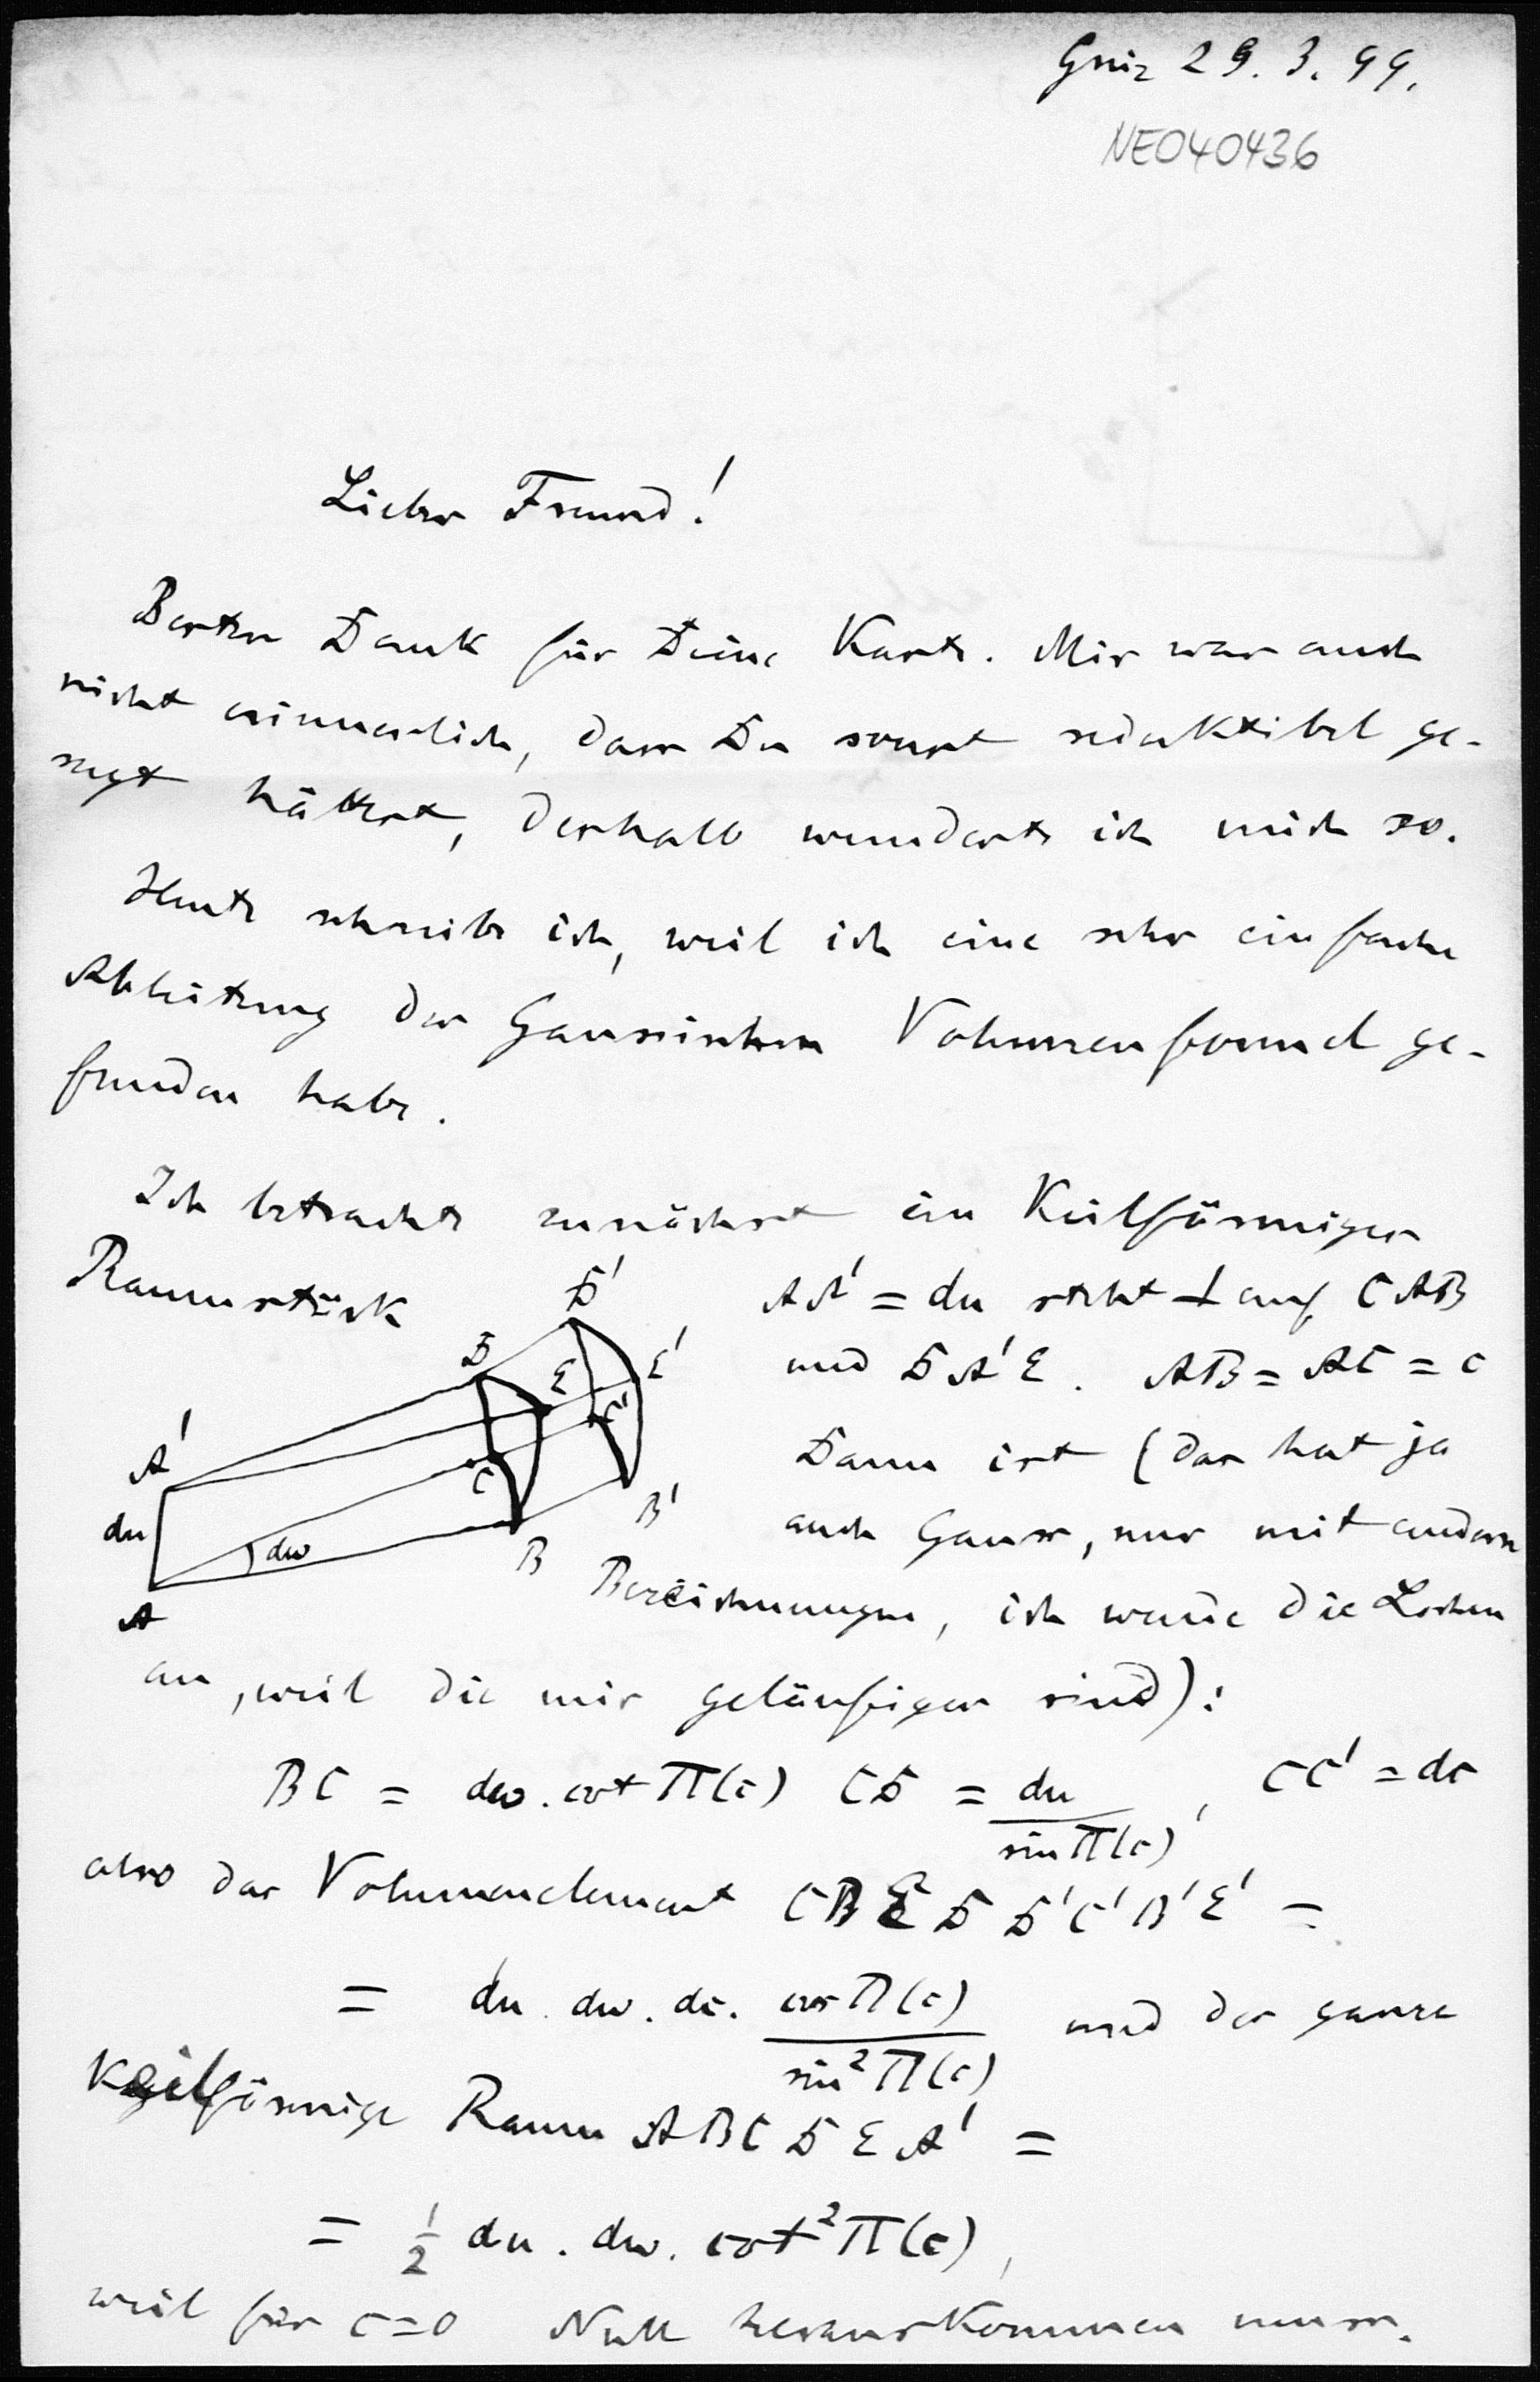 29. 3. 99.
NE040436
Lieber Freund!
Besten Dank für Deine Karte. Mir war auch
nicht erinnerlich, dass Du sonst reduktibel ge-
sagt hättest, deshalb wunderte ich mich so.
Heute schreibe ich, weil ich eine sehr einfache
Ableitung der Gaussischen Volumenformel ge-
funden habe.
Ich betrachte zunächst ein Keilförmiges
Raumstück
D'
D
E
E'
A'
C
C'
du
dω
B
B'
A
AA' = du steht ⊥ auf CAB
und DA'E. AB = AC = c
Dann ist (das hat ja
auch Gauss, nur mit andern
Bezeichnungen, ich wende die Lobschen
an, weil die mir geläufiger sind):
BC = dω . cot Π(c) CD = du / sin Π(c) , CC' = dc
also das Volumenelement CBED D'C'B'E' =
= du . dω . dc . cos Π(c) / sin² Π(c) und der ganze
Keilförmige Raum ABCDEA' =
= ½ du . dω . cot² Π(c),
weil für c=0 Null herauskommen muss.